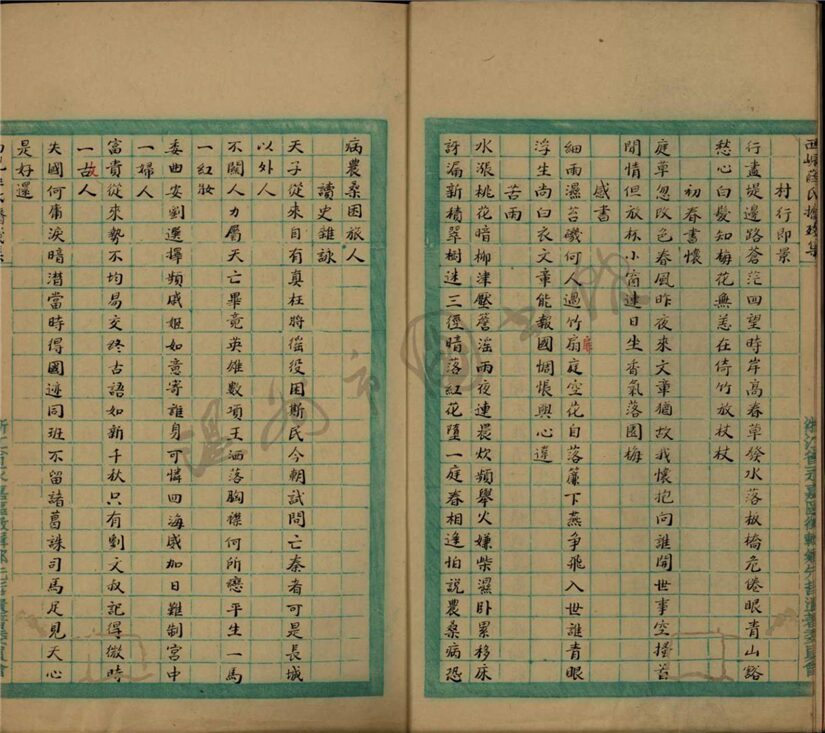 村行即景
行盡堤邊路蒼茫回望時岸高春草發水落板橋危倦眼青山豁
愁心白髮知梅花無恙在倚竹放杖
初春書懷
庭草忽改色春風昨夜來文章猶故我懷抱向誰開世事空搔首
閒情但放杯小窗連日坐香氣落園梅
感書
細雨濕苔磯何人過竹扉庭空花自落簾下燕爭飛入世誰青眼
浮生尚白衣文章能報國惆悵與心違
苦雨
水漲桃花暗柳津壓簷滛雨夜連晨炊頻舉火嫌柴濕臥累移床
訝漏新牆翠樹迷三徑暗落紅花墮一庭春相逢怕說農桑病恐
病農桑困旅人
讀史雜詠
天子從來自有真枉將徭役困斯民今朝試問亡秦者可是長城
以外人
不關人力屬天亡畢竟英雄數項王洒落胸襟何所戀平生一馬
一紅妝
委曲安劉選擇頻戚姬如意寄誰身可憐四海威加日難制宮中
一婦人
富貴從來勢不均易交終古語如新千秋只有劉文叔記得微時
一故人
失國何庸淚暗潸當時得國迹同班不留諸葛誅司馬足見天心
是好還
溫州市圖書館